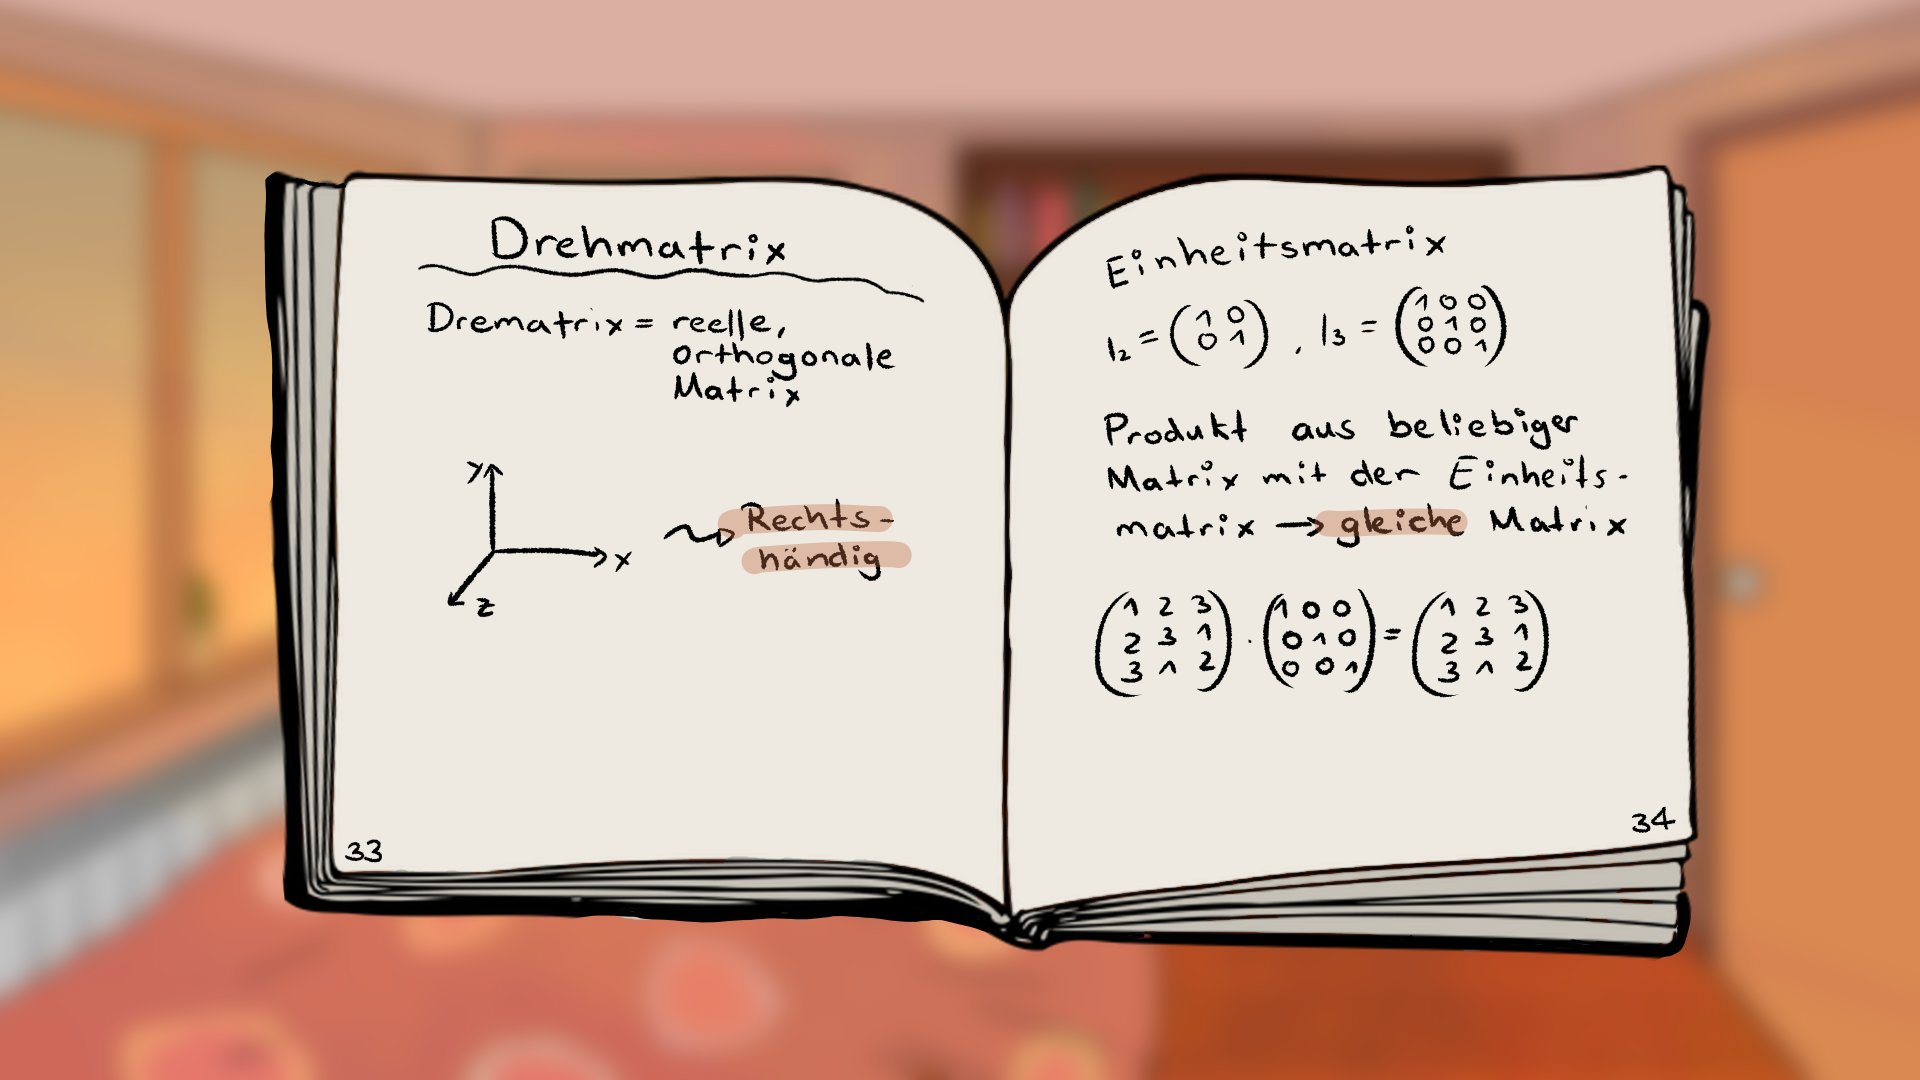 Drehmatrix
Drematrix = reelle,
orthogonale
Matrix
y
x
z
Rechts-
händig
33
Einheitsmatrix
I₂ = (1 0
0 1) , I₃ = (1 0 0
0 1 0
0 0 1)
Produkt aus beliebiger
Matrix mit der Einheits-
matrix → gleiche Matrix
(1 2 3
2 3 1
3 1 2) · (1 0 0
0 1 0
0 0 1) = (1 2 3
2 3 1
3 1 2)
34